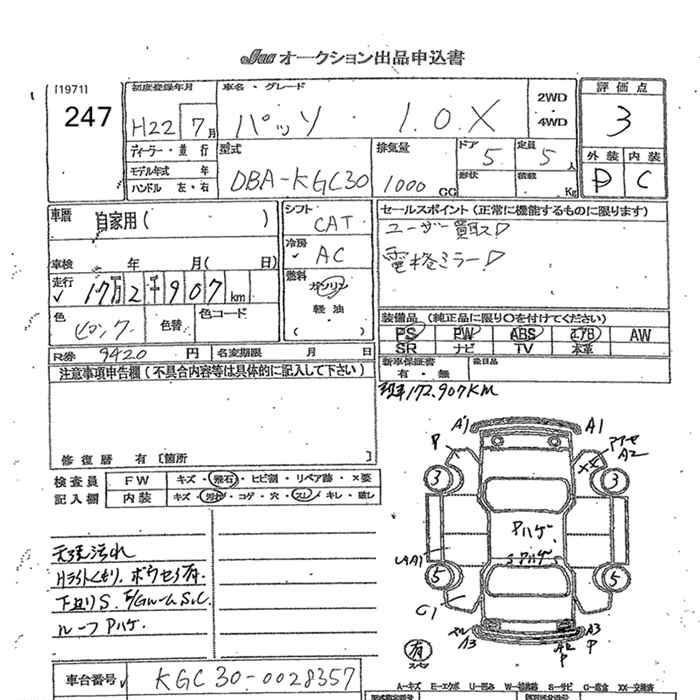 Jaa オークション出品申込書
[1971]
247
初度登録年月
H22 7月
車名・グレード
パッソ ・ 1.0 X
2WD
・
4WD
評価点
3
外装 内装
D C
ディーラー・並行
モデル年式 年
ハンドル 左・右
型式
DBA-KGC30
排気量
1000 CC
ドア 5
形状
定員 5人
積載 Kg
車暦 自家用( )
車検 年 月( 日)
走行 17万2千907km
色 ピンク
色替
色コード
R券 9420 円
名変期限 月 日
シフト
CAT
冷房
AC
燃料
ガソリン
軽油
( )
セールスポイント(正常に機能するものに限ります)
ユーザー買取!
電格ミラー!
装備品(純正品に限り○を付けてください)
PS PW ABS エアB AW
SR ナビ TV 本革
新車保証書
有・無
後日品
現車172.907KM
注意事項申告欄(不具合内容等は具体的に記入して下さい)
修復暦 有〔箇所 〕
検査員
記入欄
FW キズ・飛石・ヒビ割・リペア跡・×要
内装 キズ・汚れ・コゲ・穴・スレ・キレ・破レ
天張汚れ
下廻りS.
ルーフPハゲ.
A1 A1
P
A2
XX
3 3
Pハゲ.
Pハゲ
5 5
G1
A3
A2
P
A3
P
有
車台番号 KGC30-0028357
A−キズ E−エクボ U−凹み W−補修跡 S−サビ C−腐食 XX−交換済